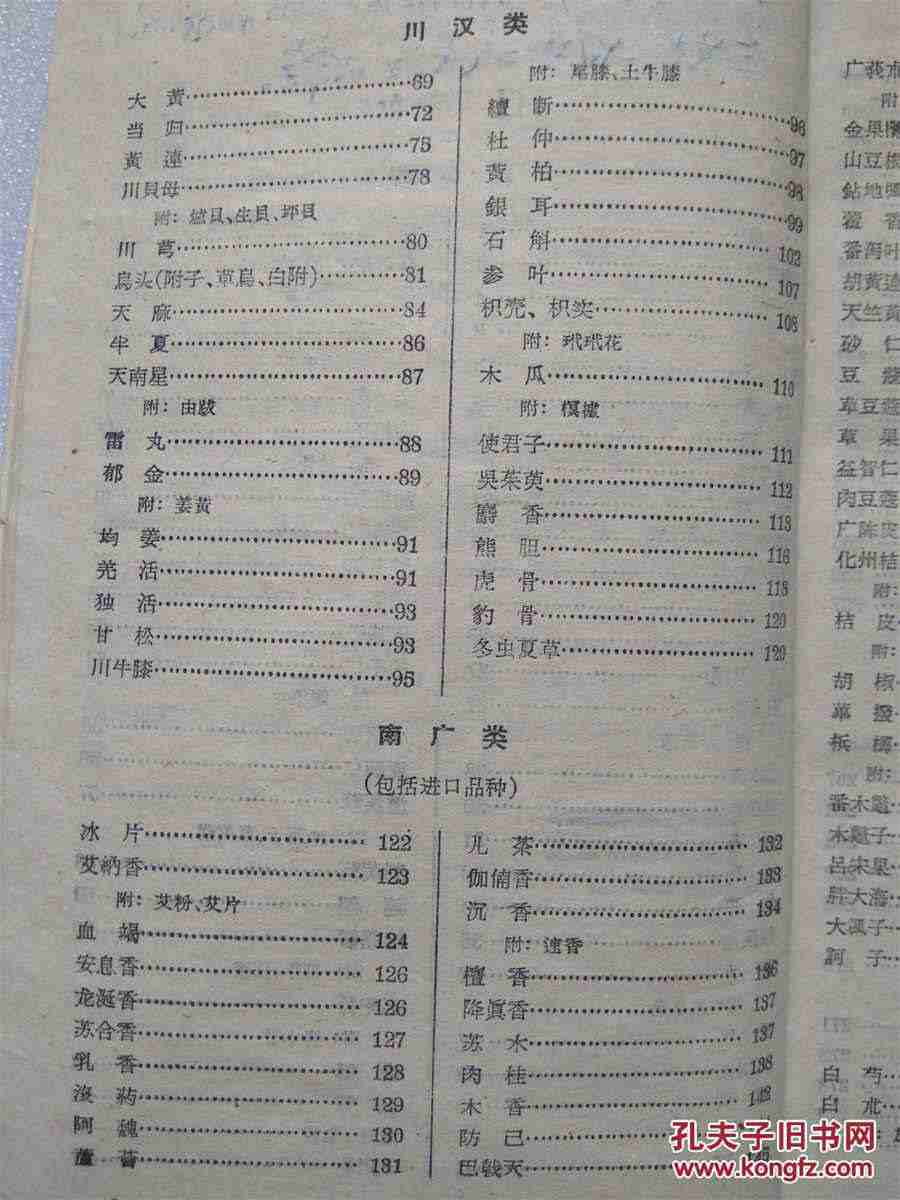 川汉类
大黃……69
当归……72
黃連……75
川貝母……78
附：爐貝、生貝、坪貝
川芎……80
烏头(附子、草烏、白附)……81
天麻……84
半夏……86
天南星……87
附：由跋
雷丸……88
郁金……89
附：姜黃
均姜……91
羌活……91
独活……93
甘松……93
川牛膝……95
附：尾膝、土牛膝
續断……96
杜仲……97
黃柏……98
銀耳……99
石斛……102
参叶……107
枳壳、枳实……108
附：玳玳花
木瓜……110
附：榠樝
使君子……111
吳茱萸……112
麝香……113
熊胆……116
虎骨……118
豹骨……120
冬虫夏草……120
南广类
(包括进口品种)
冰片……122
艾納香……123
附：艾粉、艾片
血竭……124
安息香……126
龙涎香……126
苏合香……127
乳香……128
沒药……129
阿魏……130
蘆薈……131
儿茶……132
伽倫香……133
沉香……134
附：速香
檀香……136
降眞香……137
苏木……137
肉桂……138
木香……142
防己……
巴戟天……
广莪朮
附
金果欖
山豆根
鉆地
藿香
番泻叶
胡黄連
天竺黃
砂仁
豆蔻
草豆蔻
草果
益智仁
肉豆蔻
广陈皮
化州桔
附：
桔皮
附：
胡椒
蓽撥
槟榔
附：
番木鼈
木鼈子
呂宋果
胖大海
大風子
訶子
白芍
白朮
孔夫子旧书网
www.kongfz.com